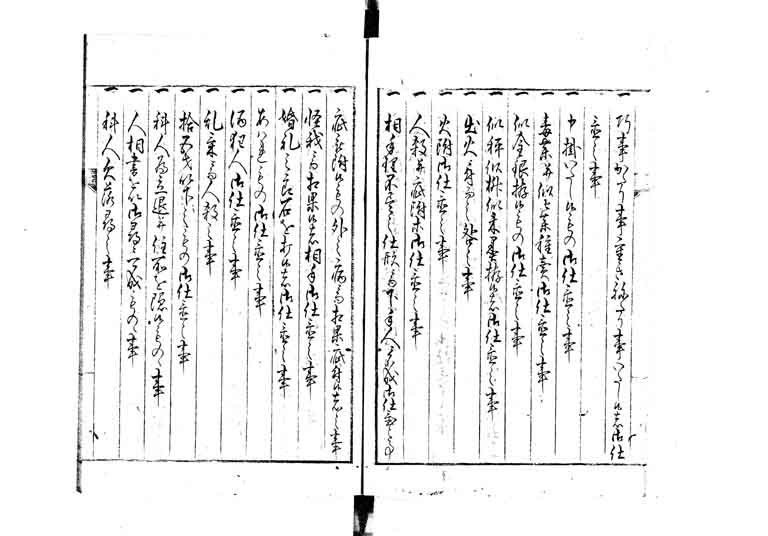 一 巧事かたり事重きねたり事いたし候者御仕
置之事
一 申掛いたし候もの御仕置之事
一 毒薬并似せ薬種売御仕置之事
一 似金銀拵候もの御仕置之事
一 似秤似枡似朱墨拵候者御仕置之事
一 出火ニ付而之咎之事
一 火附御仕置之事
一 人殺并疵附等御仕置之事
一 相手理不尽之仕形ニ而下手人ニ不成御仕置之事
一 疵被附候もの外之病ニ而相果疵附候者之事
一 怪我ニ而相果候者相手御仕置之事
一 婚礼之節石を打候者御仕置之事
一 あはれもの御仕置之事
一 酒狂人御仕置之事
一 乱気ニ而人殺之事
一 拾五才以下之もの御仕置之事
一 科人為立退并住所を隠候もの之事
一 人相書を以御尋ニ可成もの之事
一 科人欠落尋之事